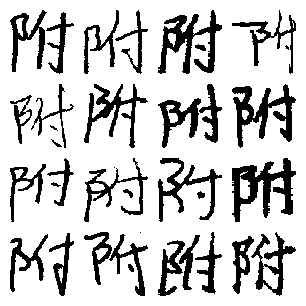 附附附附
附附附附
附附附附
附附附附